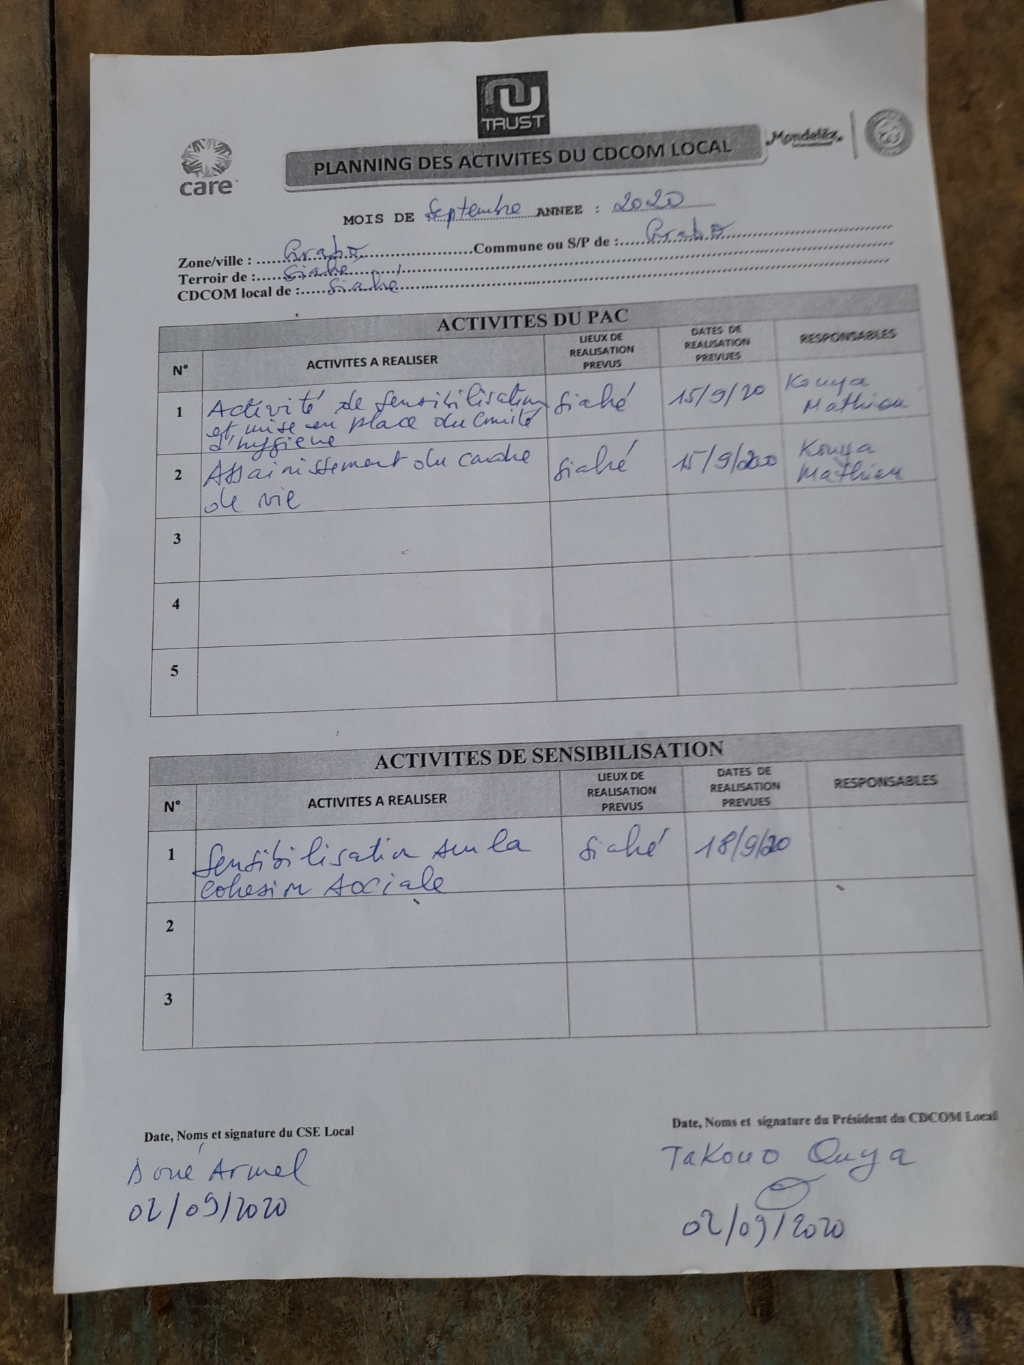 NU
TRUST
care
PLANNING DES ACTIVITES DU CDCOM LOCAL
Mondelēz
International
MOIS DE Septembre ANNEE : 2020
Zone/ville : Grabo Commune ou S/P de : Grabo
Terroir de : Siahé
CDCOM local de : Siahé
ACTIVITES DU PAC
N° ACTIVITES A REALISER LIEUX DE REALISATION PREVUS DATES DE REALISATION PREVUES RESPONSABLES
1 Activité de sensibilisation Siahé 15/9/20 Kouya
et mise en place du Comité Mathieu
d'hygiène
2 Assainissement du cadre Siahé 15/9/2020 Kouya
de vie Mathieu
3
4
5
ACTIVITES DE SENSIBILISATION
N° ACTIVITES A REALISER LIEUX DE REALISATION PREVUS DATES DE REALISATION PREVUES RESPONSABLES
1 Sensibilisation sur la Siahé 18/9/20
cohesion sociale
2
3
Date, Noms et signature du CSE Local Date, Noms et signature du Président du CDCOM Local
Doué Armel TaKouo Ouya
02/09/2020 02/09/2020